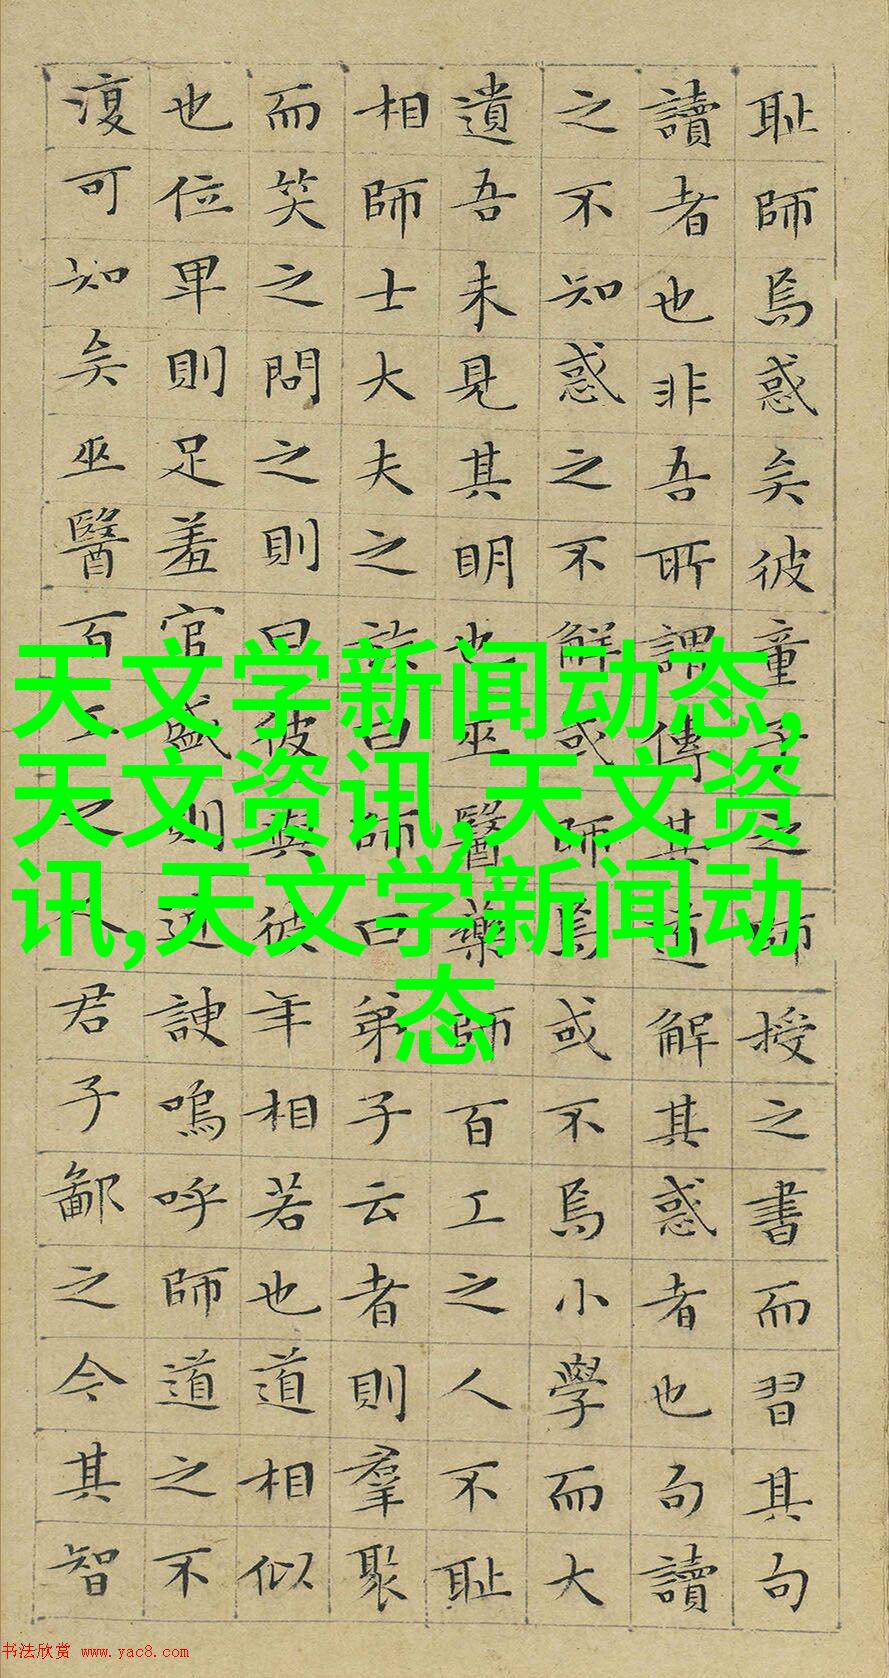 耻師焉惑矣彼童子之師授之書而習其句
讀者也非吾所謂傳其道解其惑者也句讀
之不知惑之不解或師焉或不焉小學而大
遺吾未見其明也巫醫藥師百工之人不耻
相師士大夫之族曰師曰弟子云者則羣聚
而笑之問之則曰彼與彼年相若也道相似
也位卑則足羞官盛則近諛嗚呼師道之不
復可知矣巫醫百工之人君子鄙之今其智
天文学新闻动态,
天文资讯,天文资
讯,天文学新闻动
态
书法欣赏 www.yac8.com